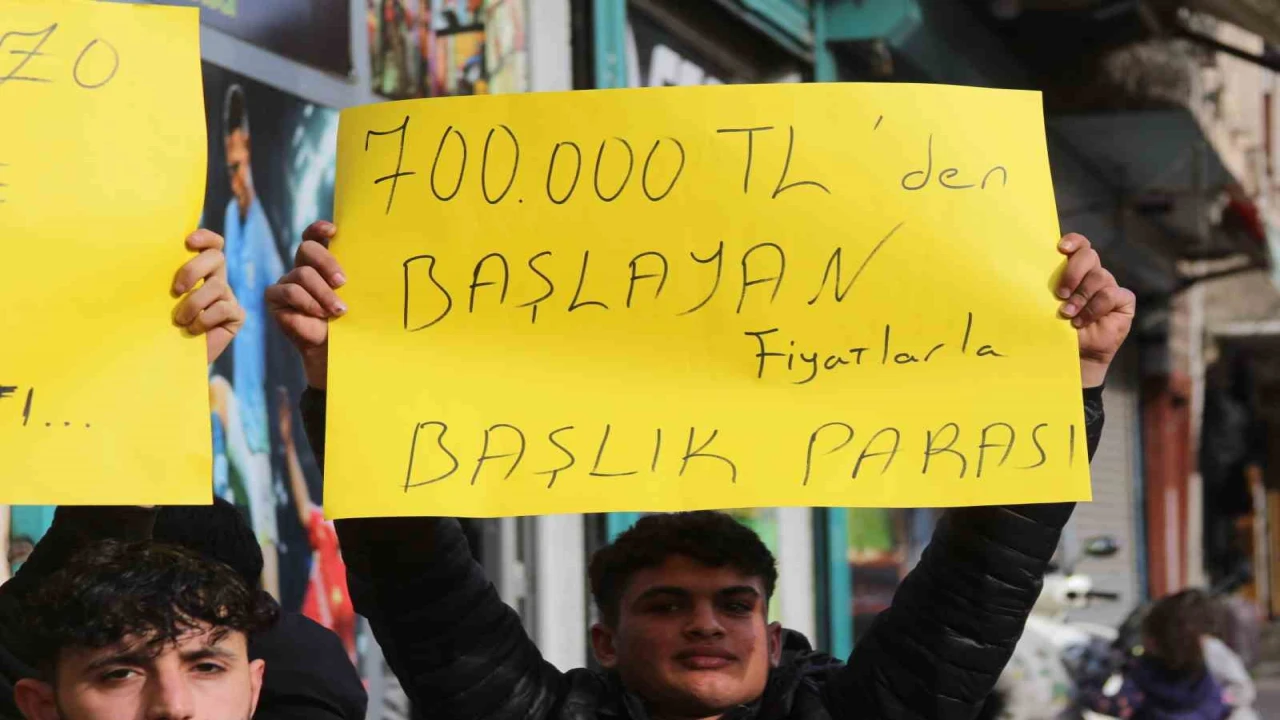 700.000 TL'den
BAŞLAYAN
Fiyatlarla
BAŞLIK PARASI